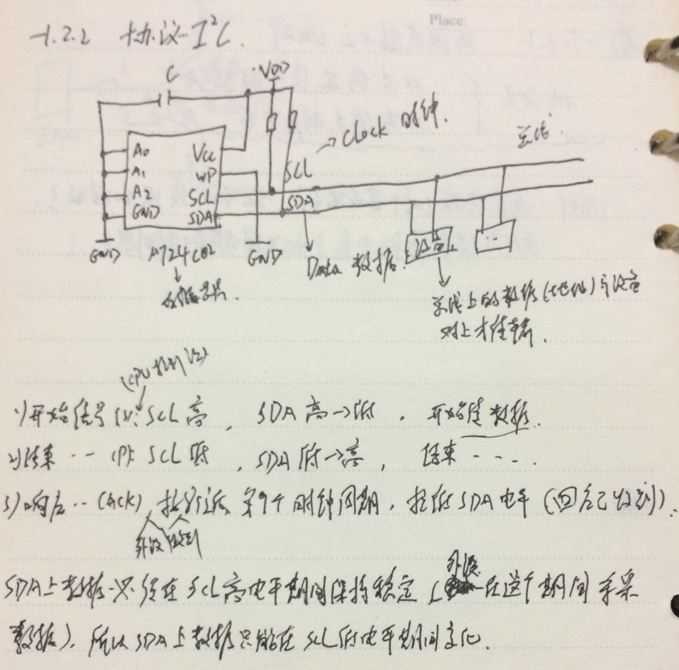 1.2.2 协议-I²C.
C
VDD
A0
A1
A2
GND
Vcc
WP
SCL
SDA
→ clock 时钟.
总线
SCL
SDA
GND
GND
Data 数据
设备
总线上的数据(地址)与设备
对上才传输.
(CPU控制的)
1)开始信号 SCL高, SDA 高→低, 开始传数据.
2)结束 ‥ SCL , SDA 低→高, 结束 ‥‥.
3)响应 ‥ (ACK), 第9个时钟周期, 拉低SDA电平(回应收到).
外设 收到
外设
SDA上数据必须在SCL高电平期间保持稳定 ( 在这个期间采
数据), 所以SDA上数据只能在SCL低电平期间变化.